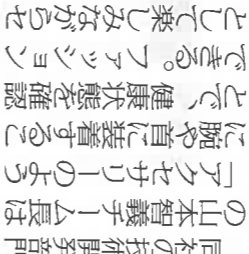 同社の技術開発部門
の山本智義チーム長は
「アクセサリーのよう
に腕や首に装着するこ
とで、健康状態を確認
できる。ファッション
として楽しみながらセ